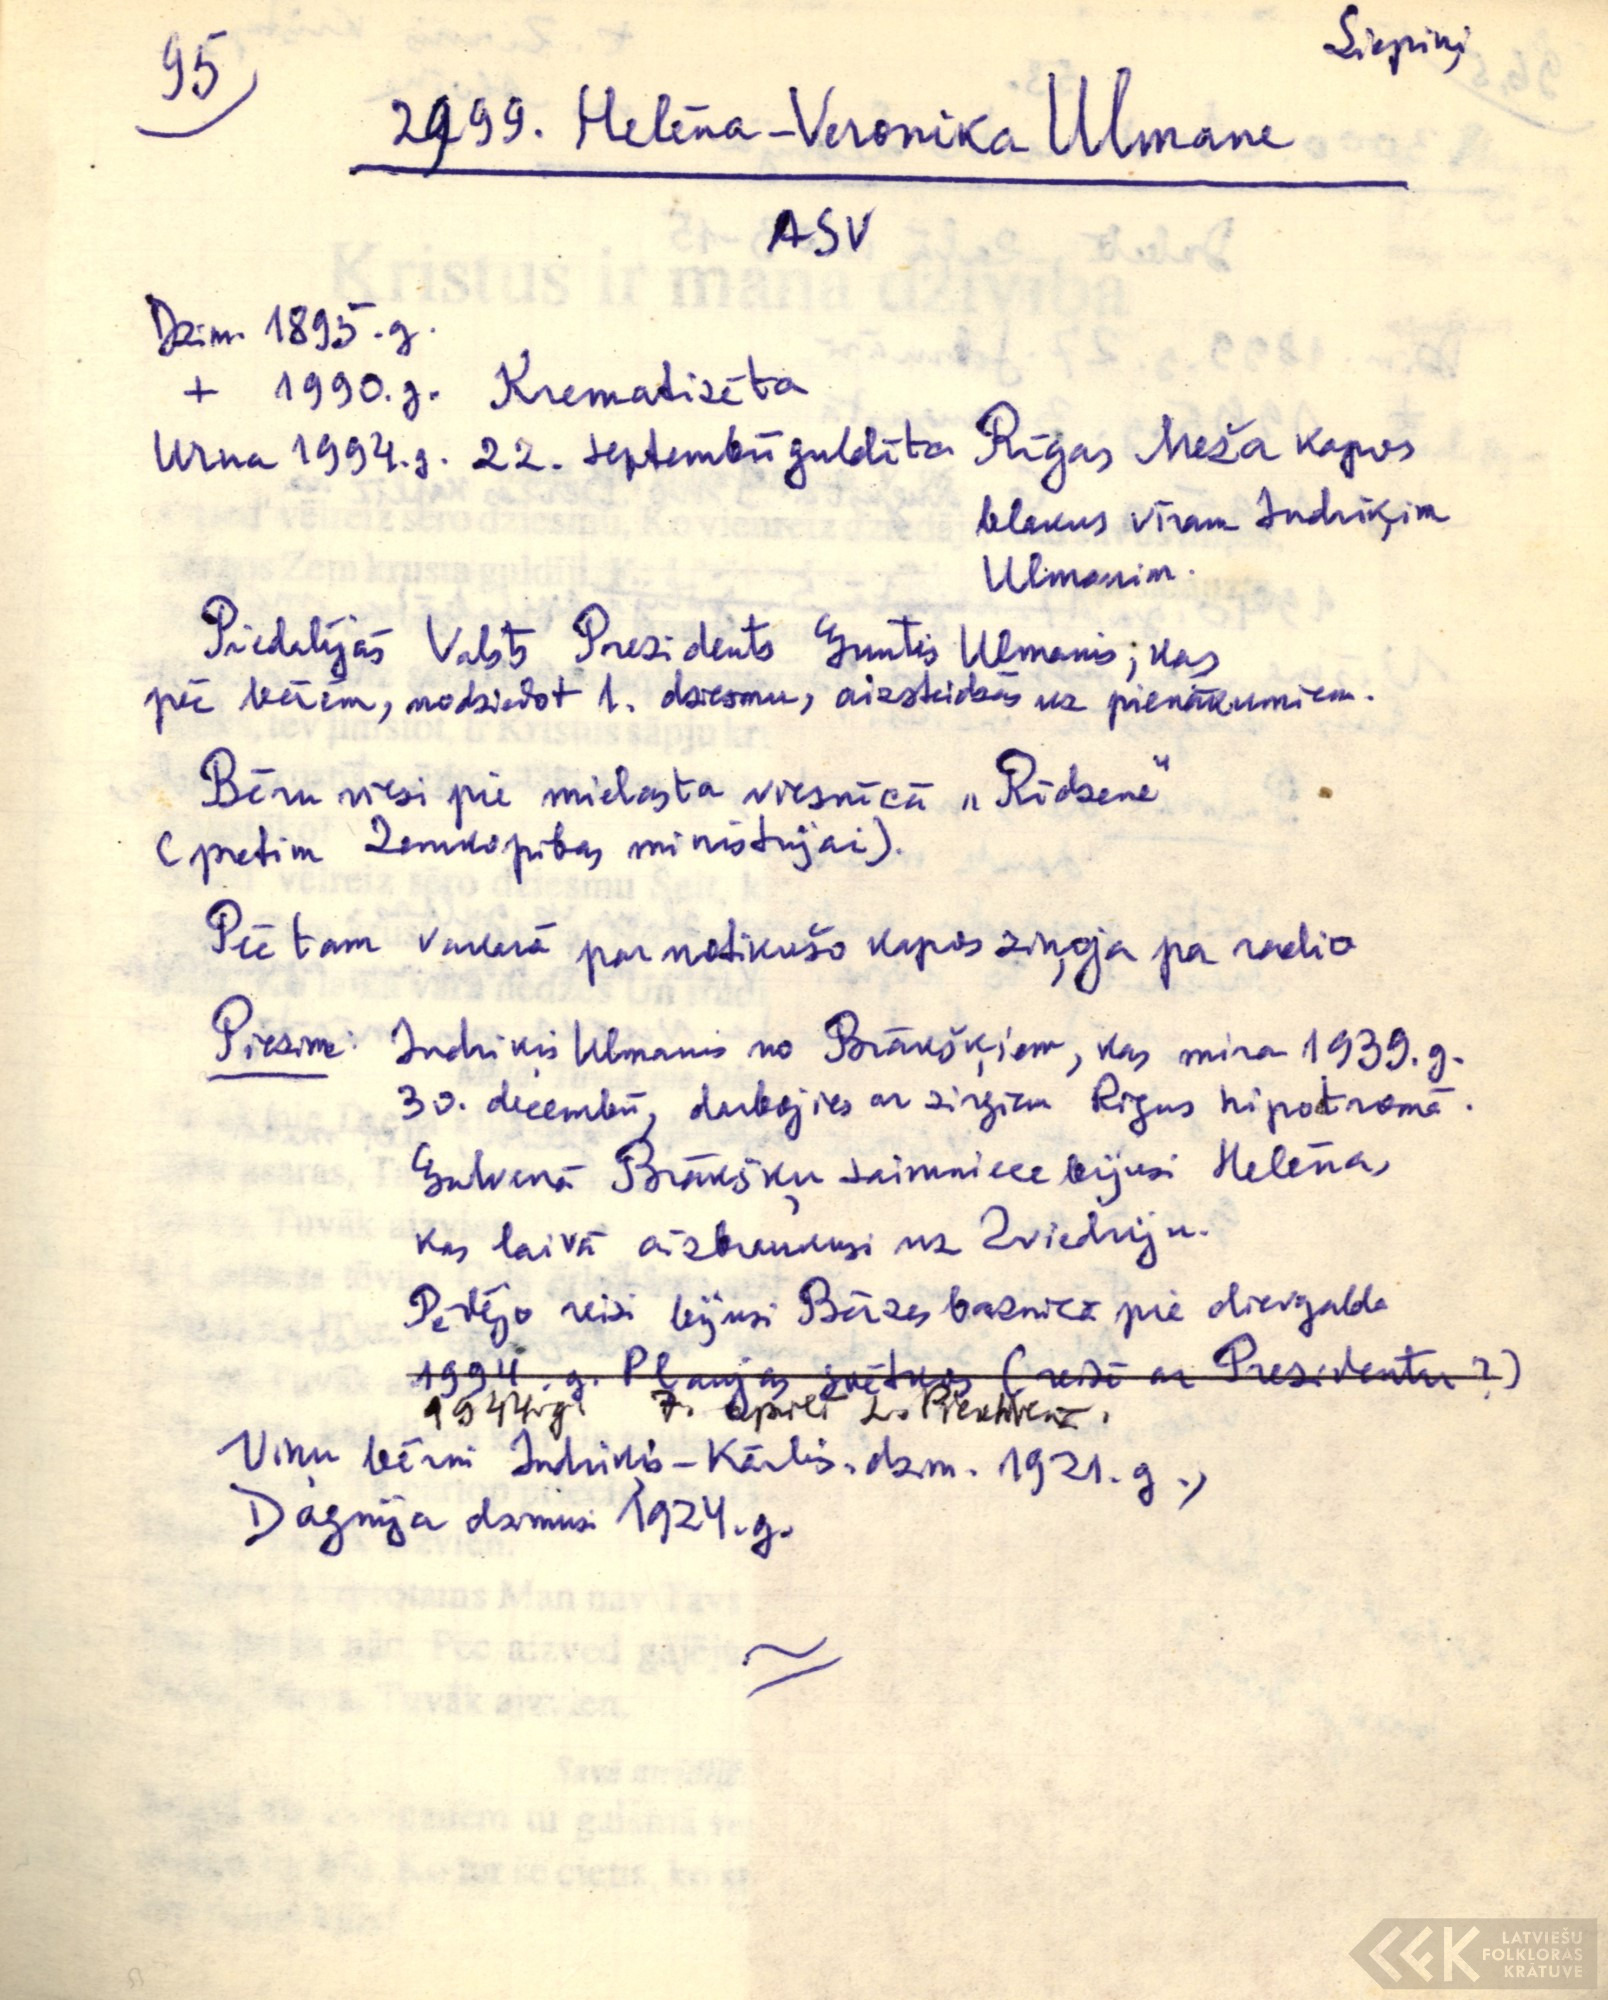 95
Liepiņi
2999. Helēna-Veronika Ulmane
ASV
Dzim. 1895.g.
+ 1990.g. Krematizēta
Urna 1994.g. 22. septembrī guldīta Rīgas Meža kapos
blakus vīram Indriķim
Ulmanim.
Piedalījās Valsts Prezidents Guntis Ulmanis, kas
pēc bērēm, nodziedot 1. dziesmu, aizsteidzās uz pienākumiem.
Bēru viesi pie mielasta viesnīcā „Rīdzene"
(pretim Zemkopības ministrijai).
Pēc tam vakarā par notikušo kapos ziņoja pa radio
Piezīme: Indriķis Ulmanis no Brākšķiem, kas mira 1939.g.
30. decembrī, darbojies ar zirgiem Rīgas hipotromā.
Galvenā Brākšķu saimniece bijusi Helēna,
kas laivā aizbraukusi uz Zviedriju.
Pēdējo reizi bijusi Bērzes baznīcā pie dievgalda
1994.g. Pļaujas svētkos (reizē ar Prezidentu?)
1944.g. 7. aprīlī L. Piektdienā.
Viņu bērni Indriķis-Kārlis. dzim. 1921.g.,
Dagnija dzimusi 1924.g.
Kristus ir mana dzīvība
LATVIEŠU
FOLKLORAS
KRĀTUVE